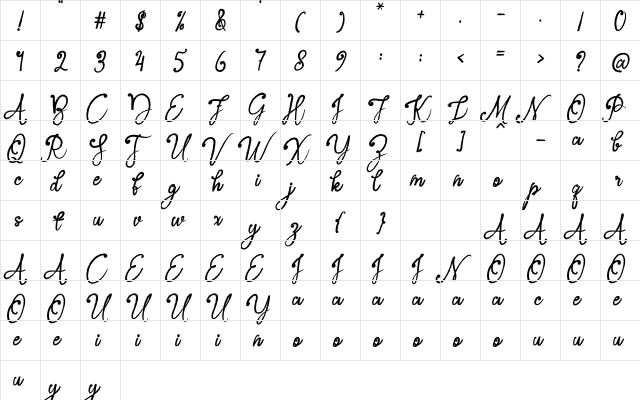 ! " # $ % & ' ( ) * + , - . / 0
1 2 3 4 5 6 7 8 9 : ; < = > ? @
A B C D E F G H I J K L M N O P
Q R S T U V W X Y Z [ ] ^ _ a b
c d e f g h i j k l m n o p q r
s t u v w x y z { } A A A A
A A C E E E E I I I I N O O O O
O O U U U U Y a a a a a a c e e
e e i i i i n o o o o o o u u u
u y y